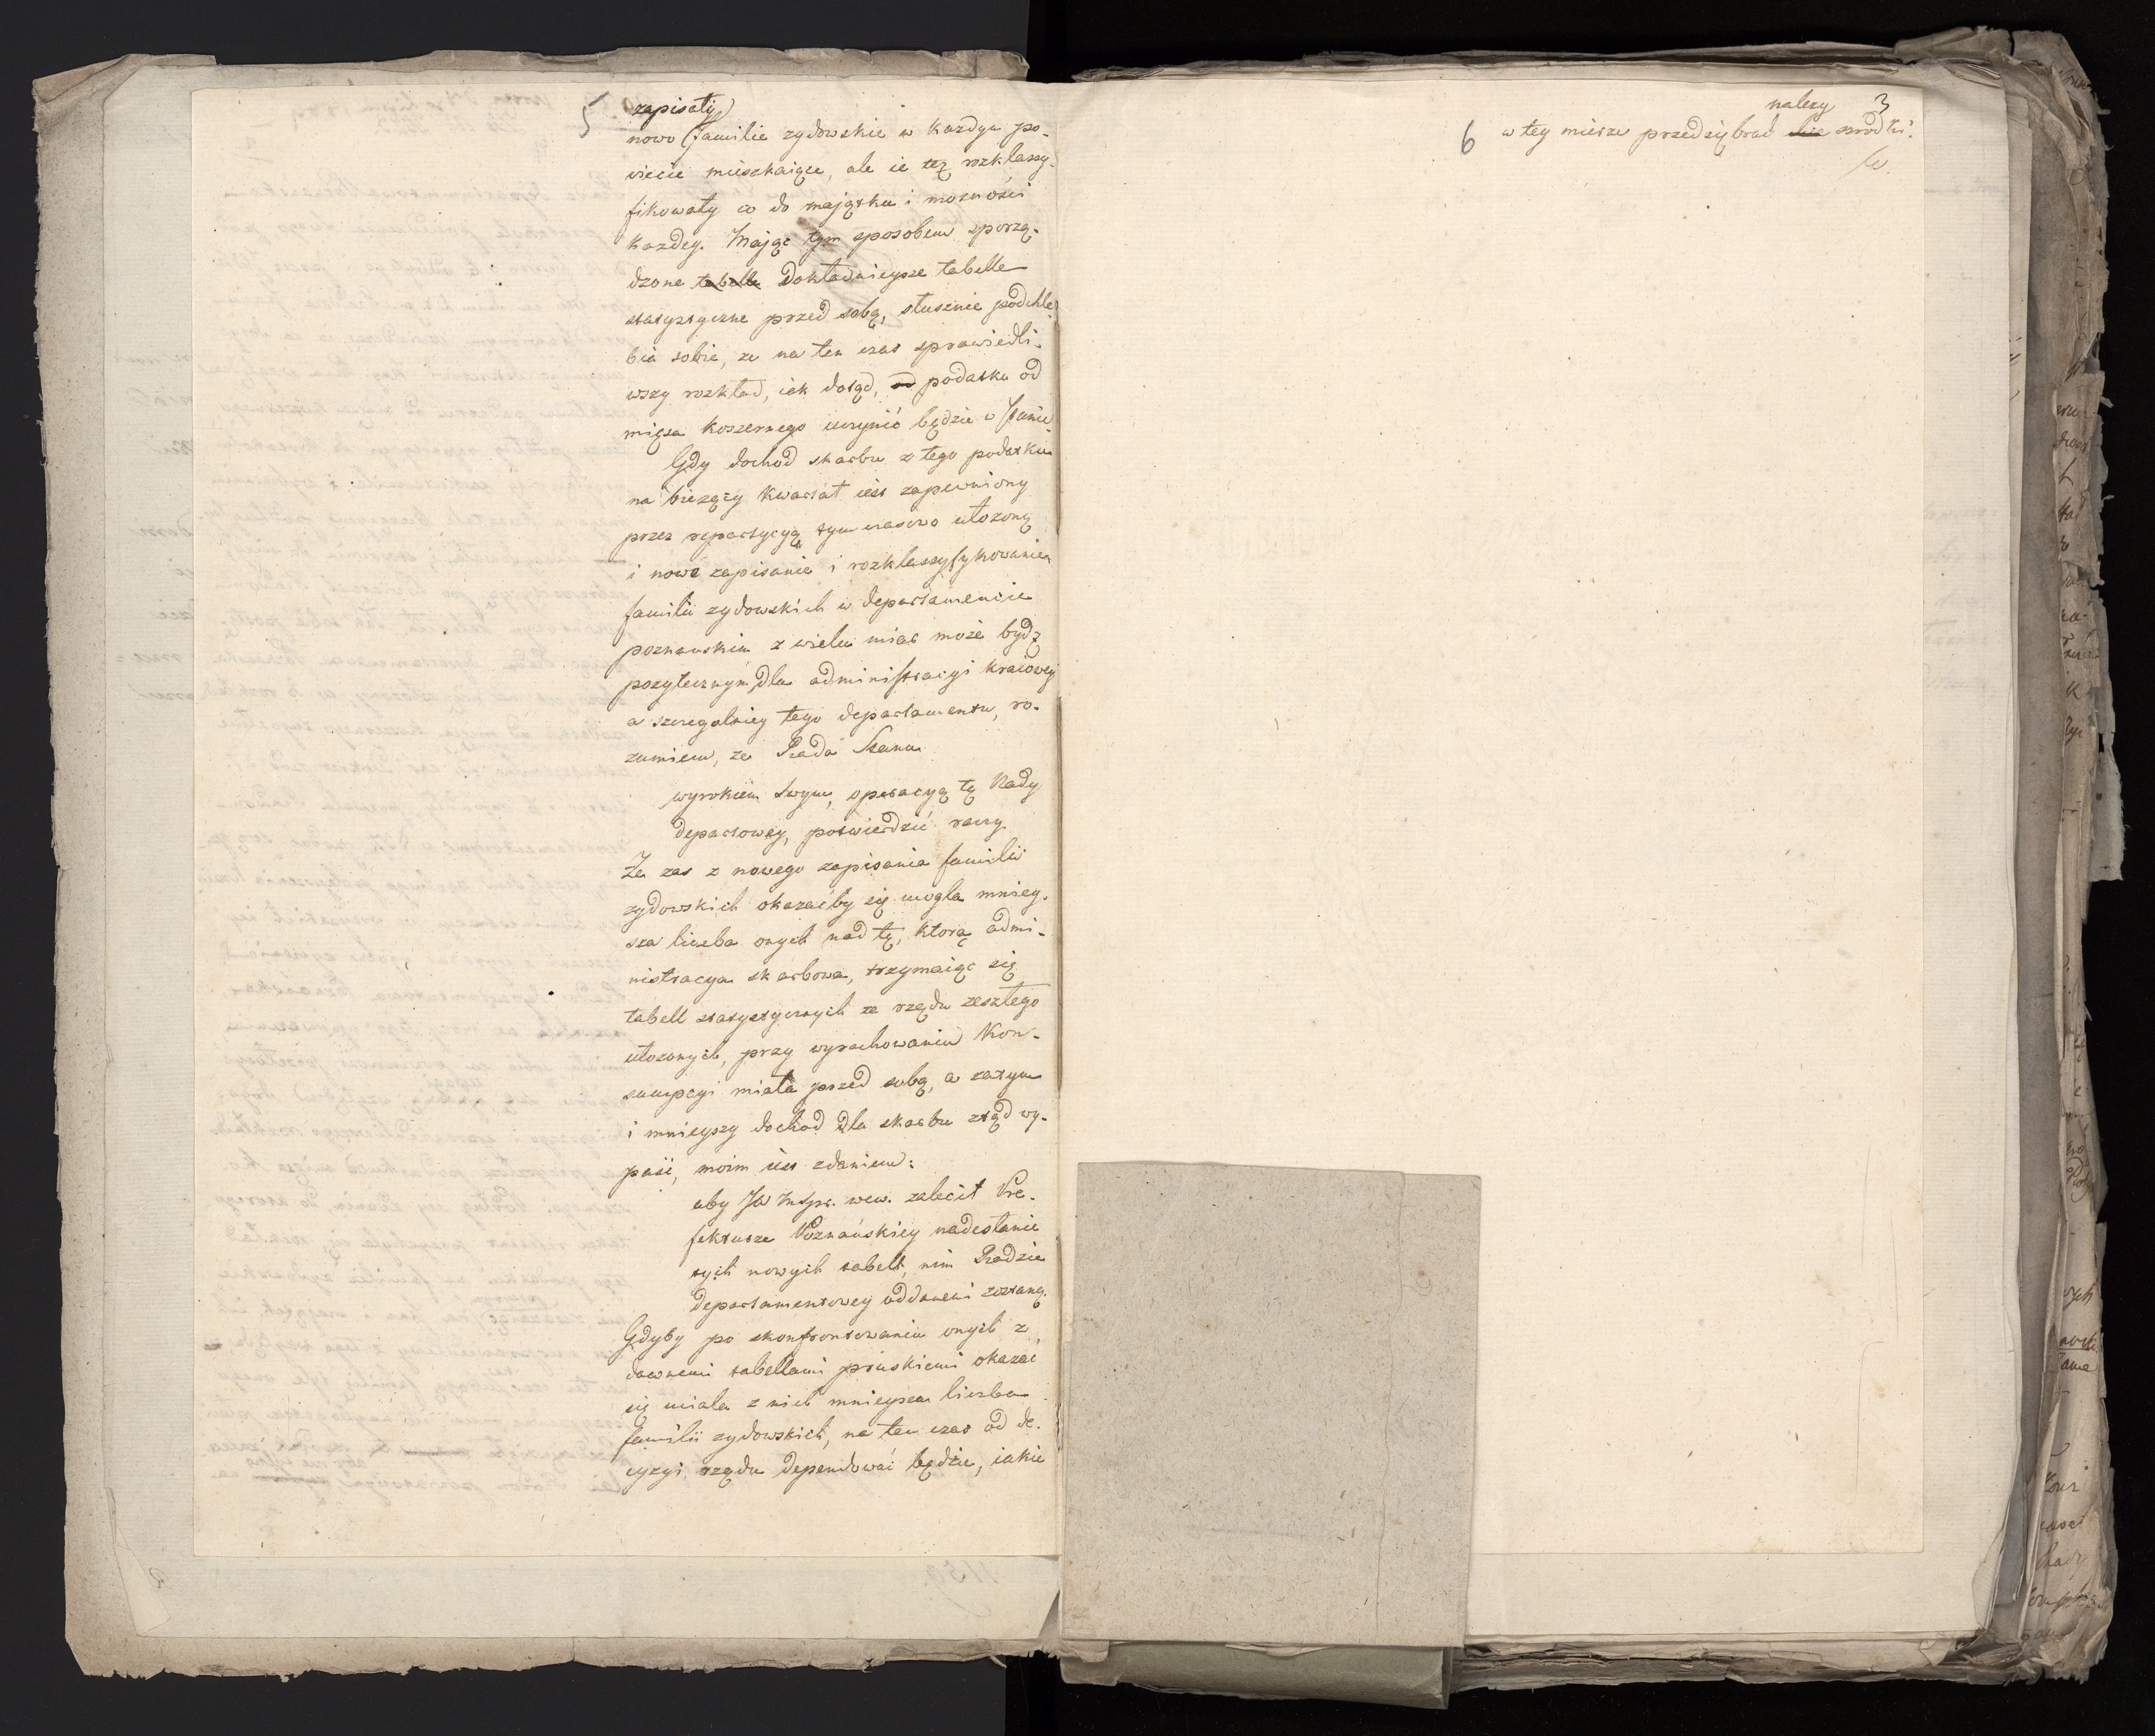 5
zapisały
nowo familie zydowskie w kazdym po-
wiecie mieszkaiące, ale ie tęz rozklassy-
fikowały co do maiątku i moznosci
kazdey. Maiąc tym sposobem sporzą-
dzone tabelle dokładnieysze tabelle
statystyczne przed sobą, słusznie podchle-
bia sobie, ze na ten czas sprawiedli-
wszy rozkład, iak dotąd, od podatku od
mięsa koszernego uczynić będzie w stanie.
Gdy dochod skarbu z tego podatku
na biezący kwartał iest zapewniony
przez repartycyą tymczasowo ułozoną
i nowe zapisanie i rozklassyfykowanie
familii zydowskich w departamencie
poznanskim z wielu miar może bydz
pozytecznym dla administracyi kraiowey
a szczegolniey tego departamentu, ro-
zumiem, ze Rada Stanu
wyrokiem swym, operacyą tę Rady
departowey, potwierdzić raczy.
Ze zas z nowego zapisania familii
zydowskich okazaćby się mogła mniey-
sza liczba onych nad tę, ktorą admi-
nistracya skarbowa, trzymaiąc się
tabell statystycznych za rządu zeszłego
ułozonych, przy wyrachowaniu Kon-
sumpcyi miała przed sobą, a zatym
i mnieyszy dochod dla skarbu ztąd wy-
paść, moim iest zdaniem:
aby JW Mstr. wew. zalecił Pre-
fekturze Poznańskiey nadesłanie
tych nowych tabell, nim Radzie
departamentowey oddanemi zostaną.
Gdyby po skonfrontowaniu onych z
dawnemi tabellami pruskiemi okazać
się miała z nich mnieysza liczba
familii zydowskich, na ten czas od de-
cyzyi rządu dependować będzie, iakie
nalezy 3
6 w tey mierze przedsiębrać srodki.